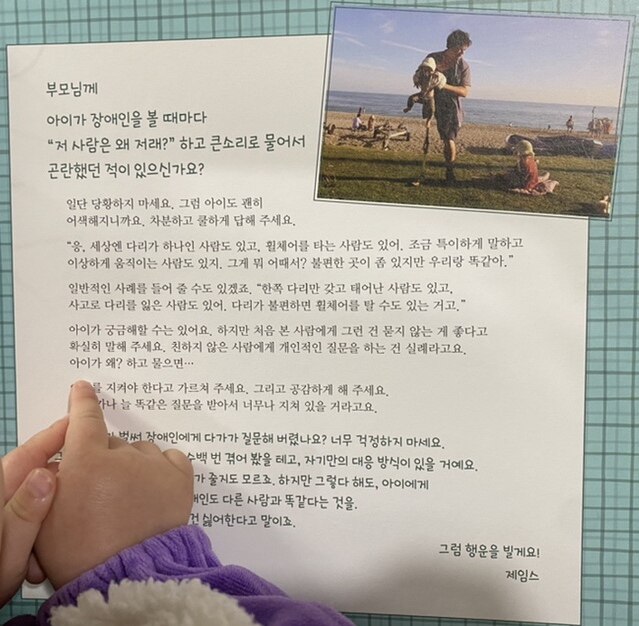 부모님께
아이가 장애인을 볼 때마다
“저 사람은 왜 저래?” 하고 큰소리로 물어서
곤란했던 적이 있으신가요?
일단 당황하지 마세요. 그럼 아이도 괜히
어색해지니까요. 차분하고 쿨하게 답해 주세요.
“응, 세상엔 다리가 하나인 사람도 있고, 휠체어를 타는 사람도 있어. 조금 특이하게 말하고
이상하게 움직이는 사람도 있지. 그게 뭐 어때서? 불편한 곳이 좀 있지만 우리랑 똑같아.”
일반적인 사례를 들어 줄 수도 있겠죠. “한쪽 다리만 갖고 태어난 사람도 있고,
사고로 다리를 잃은 사람도 있어. 다리가 불편하면 휠체어를 탈 수도 있는 거고.”
아이가 궁금해할 수는 있어요. 하지만 처음 본 사람에게 그런 건 묻지 않는 게 좋다고
확실히 말해 주세요. 친하지 않은 사람에게 개인적인 질문을 하는 건 실례라고요.
아이가 왜? 하고 물으면…
를 지켜야 한다고 가르쳐 주세요. 그리고 공감하게 해 주세요.
늘 똑같은 질문을 받아서 너무나 지쳐 있을 거라고요.
벌써 장애인에게 다가가 질문해 버렸나요? 너무 걱정하지 마세요.
수백 번 겪어 봤을 테고, 자기만의 대응 방식이 있을 거예요.
가 줄지도 모르죠. 하지만 그렇다 해도, 아이에게
인도 다른 사람과 똑같다는 것을.
건 싫어한다고 말이죠.
그럼 행운을 빌게요!
제임스